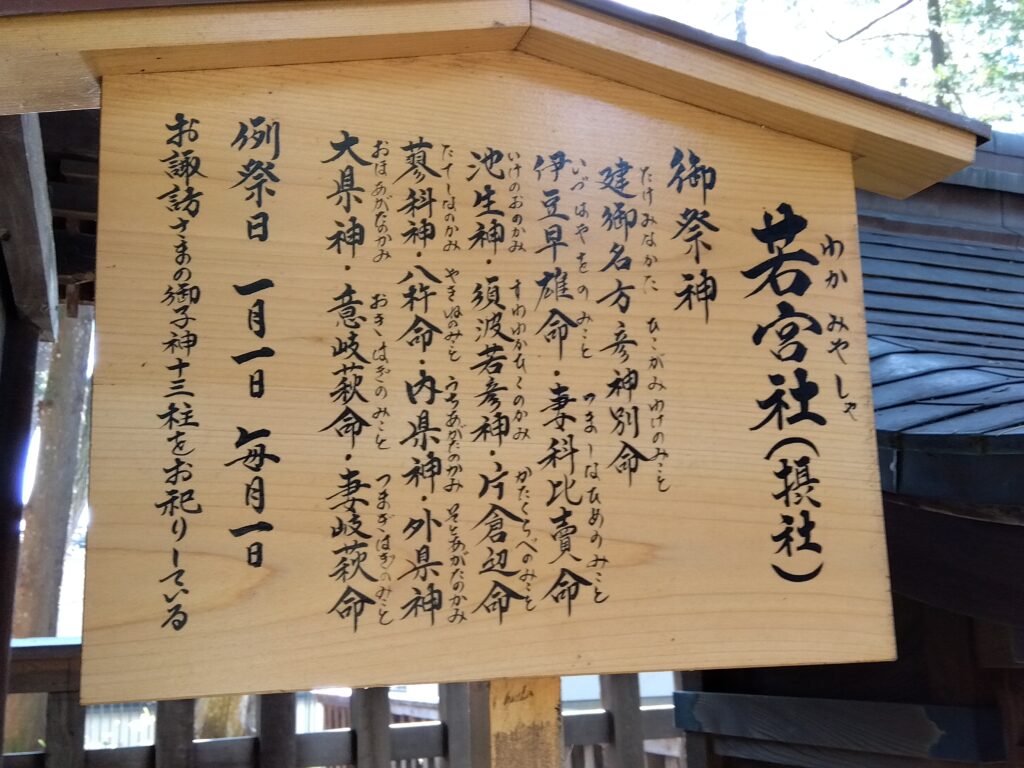 若宮社(摂社)
わか みやしゃ
御祭神
建御名方彦神別命
たけみなかた ひこがみわけのみこと
伊豆早雄命・妻科比賣命
いづはやをの みこと つましなひめのみこと
池生神・須波若彦神・片倉辺命
いけのおのかみ すわわかひこのかみ かたくらべのみこと
蓼科神・八杵命・内県神・外県神
たてしなのかみ やきねのみこと うちあがたのかみ そとあがたのかみ
大県神・意岐萩命・妻岐萩命
おほあがたのかみ おきはぎのみこと つまぎはぎのみこと
例祭日 一月一日 毎月一日
お諏訪さまの御子神十三柱をお祀りしている